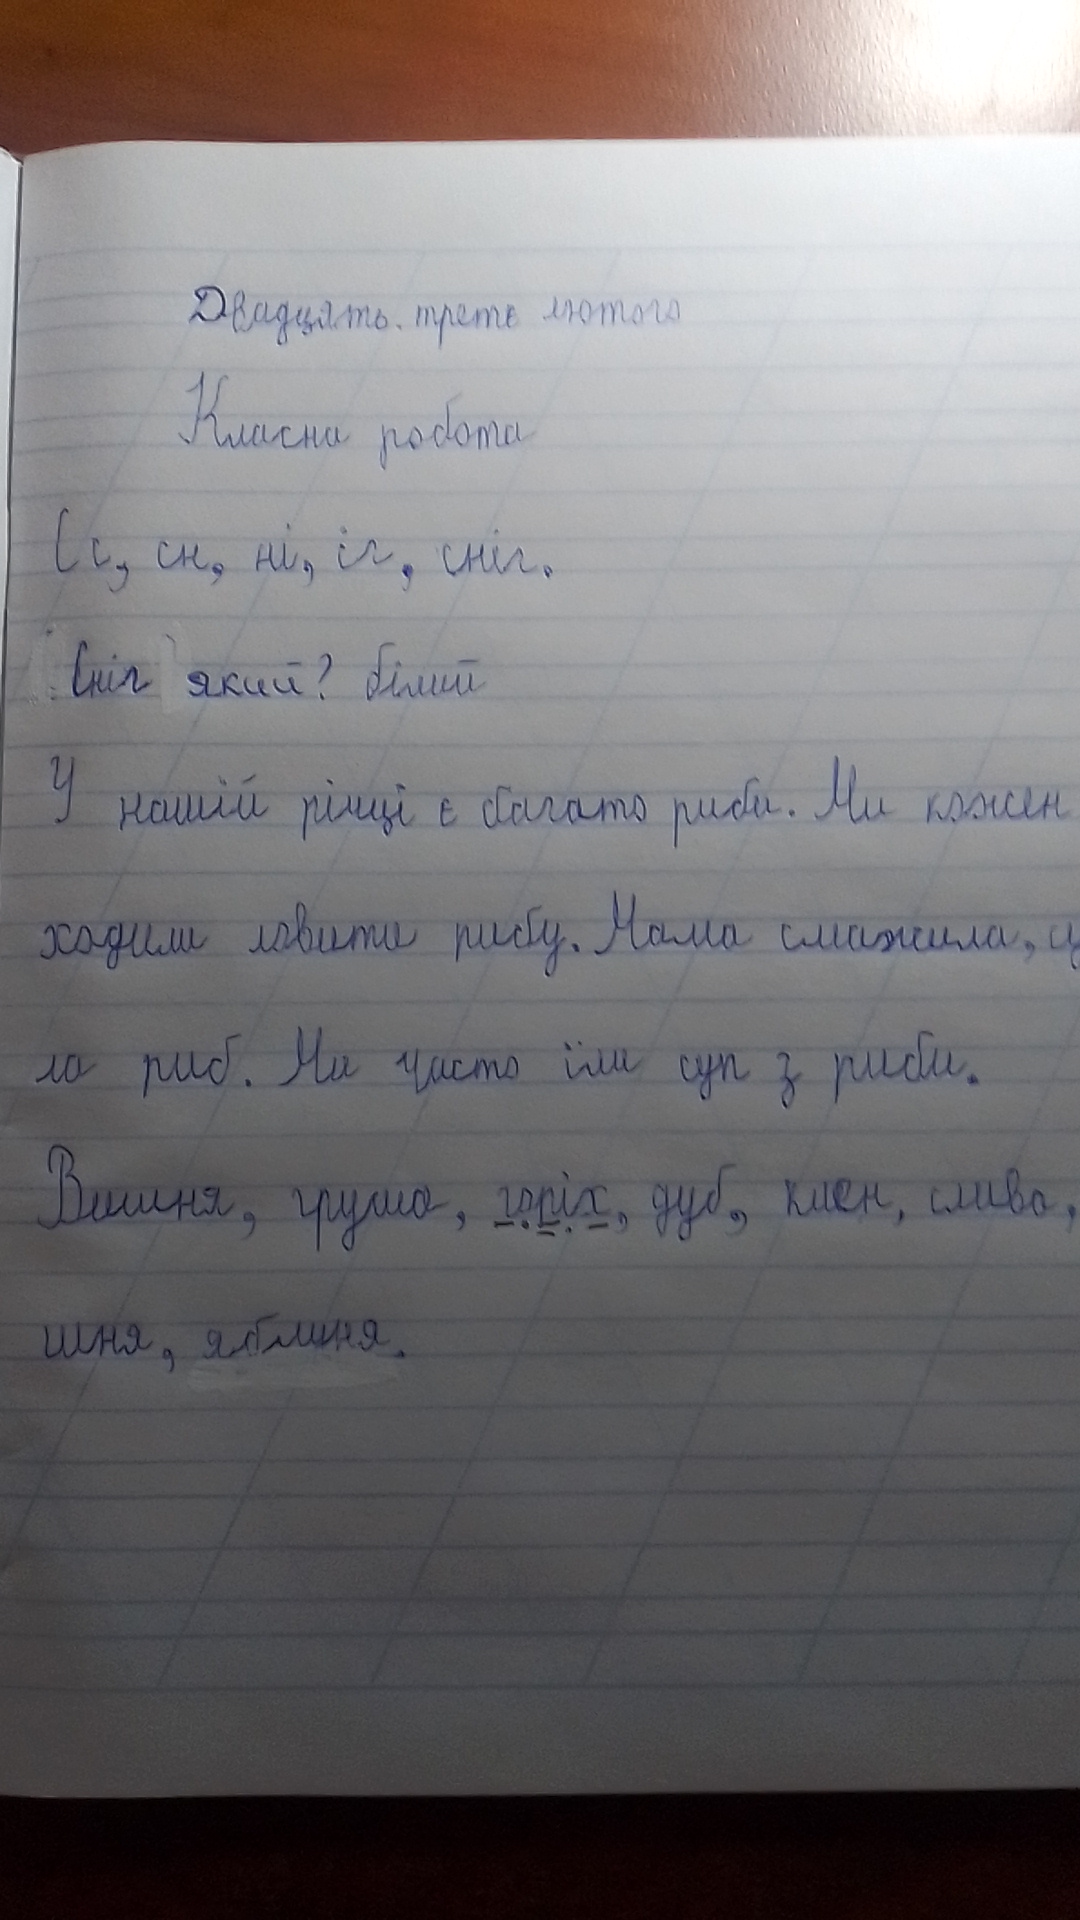 Двадцять третє лютого
Класна робота
Сс, сн, ні, іг, сніг.
Сніг який? білий
У нашій річці є багато риби. Ми кожен
ходили ловити рибу. Мама смажила,
ла риб. Ми часто їли суп з риби.
Вишня, груша, горіх, дуб, клен, слива,
шня, яблуня.